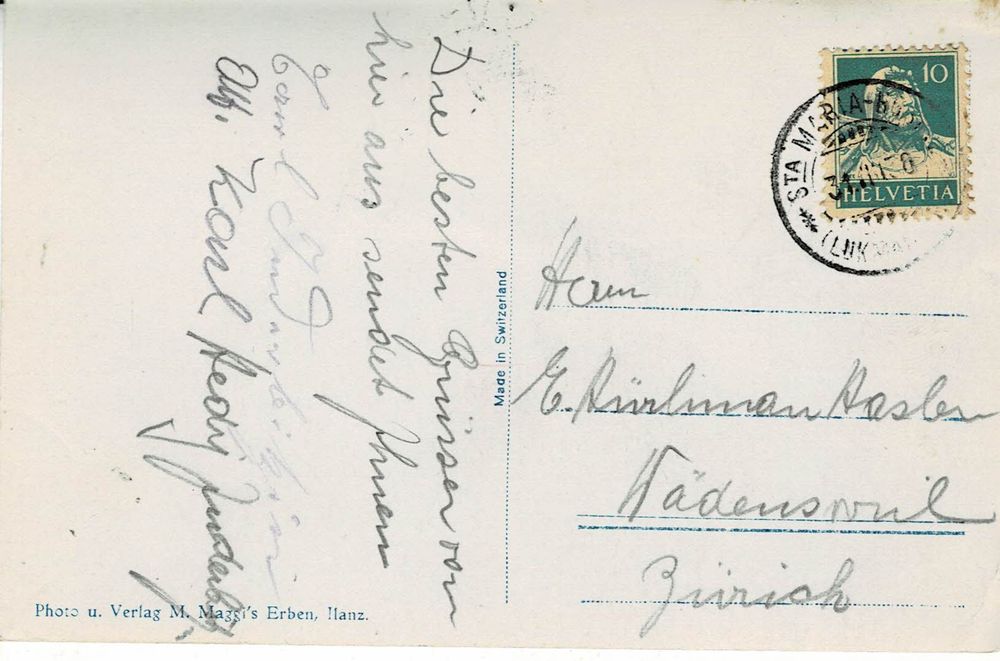 Die besten Grüsse von
hier aus sendet Ihnen
Alb. Karl Hedy
10
HELVETIA
STA MARIA
(LUKMA
Made in Switzerland
Herrn
E. Hürliman Hasler
Wädensvvil
Zürich
Photo u. Verlag M. Maggi's Erben, Ilanz.